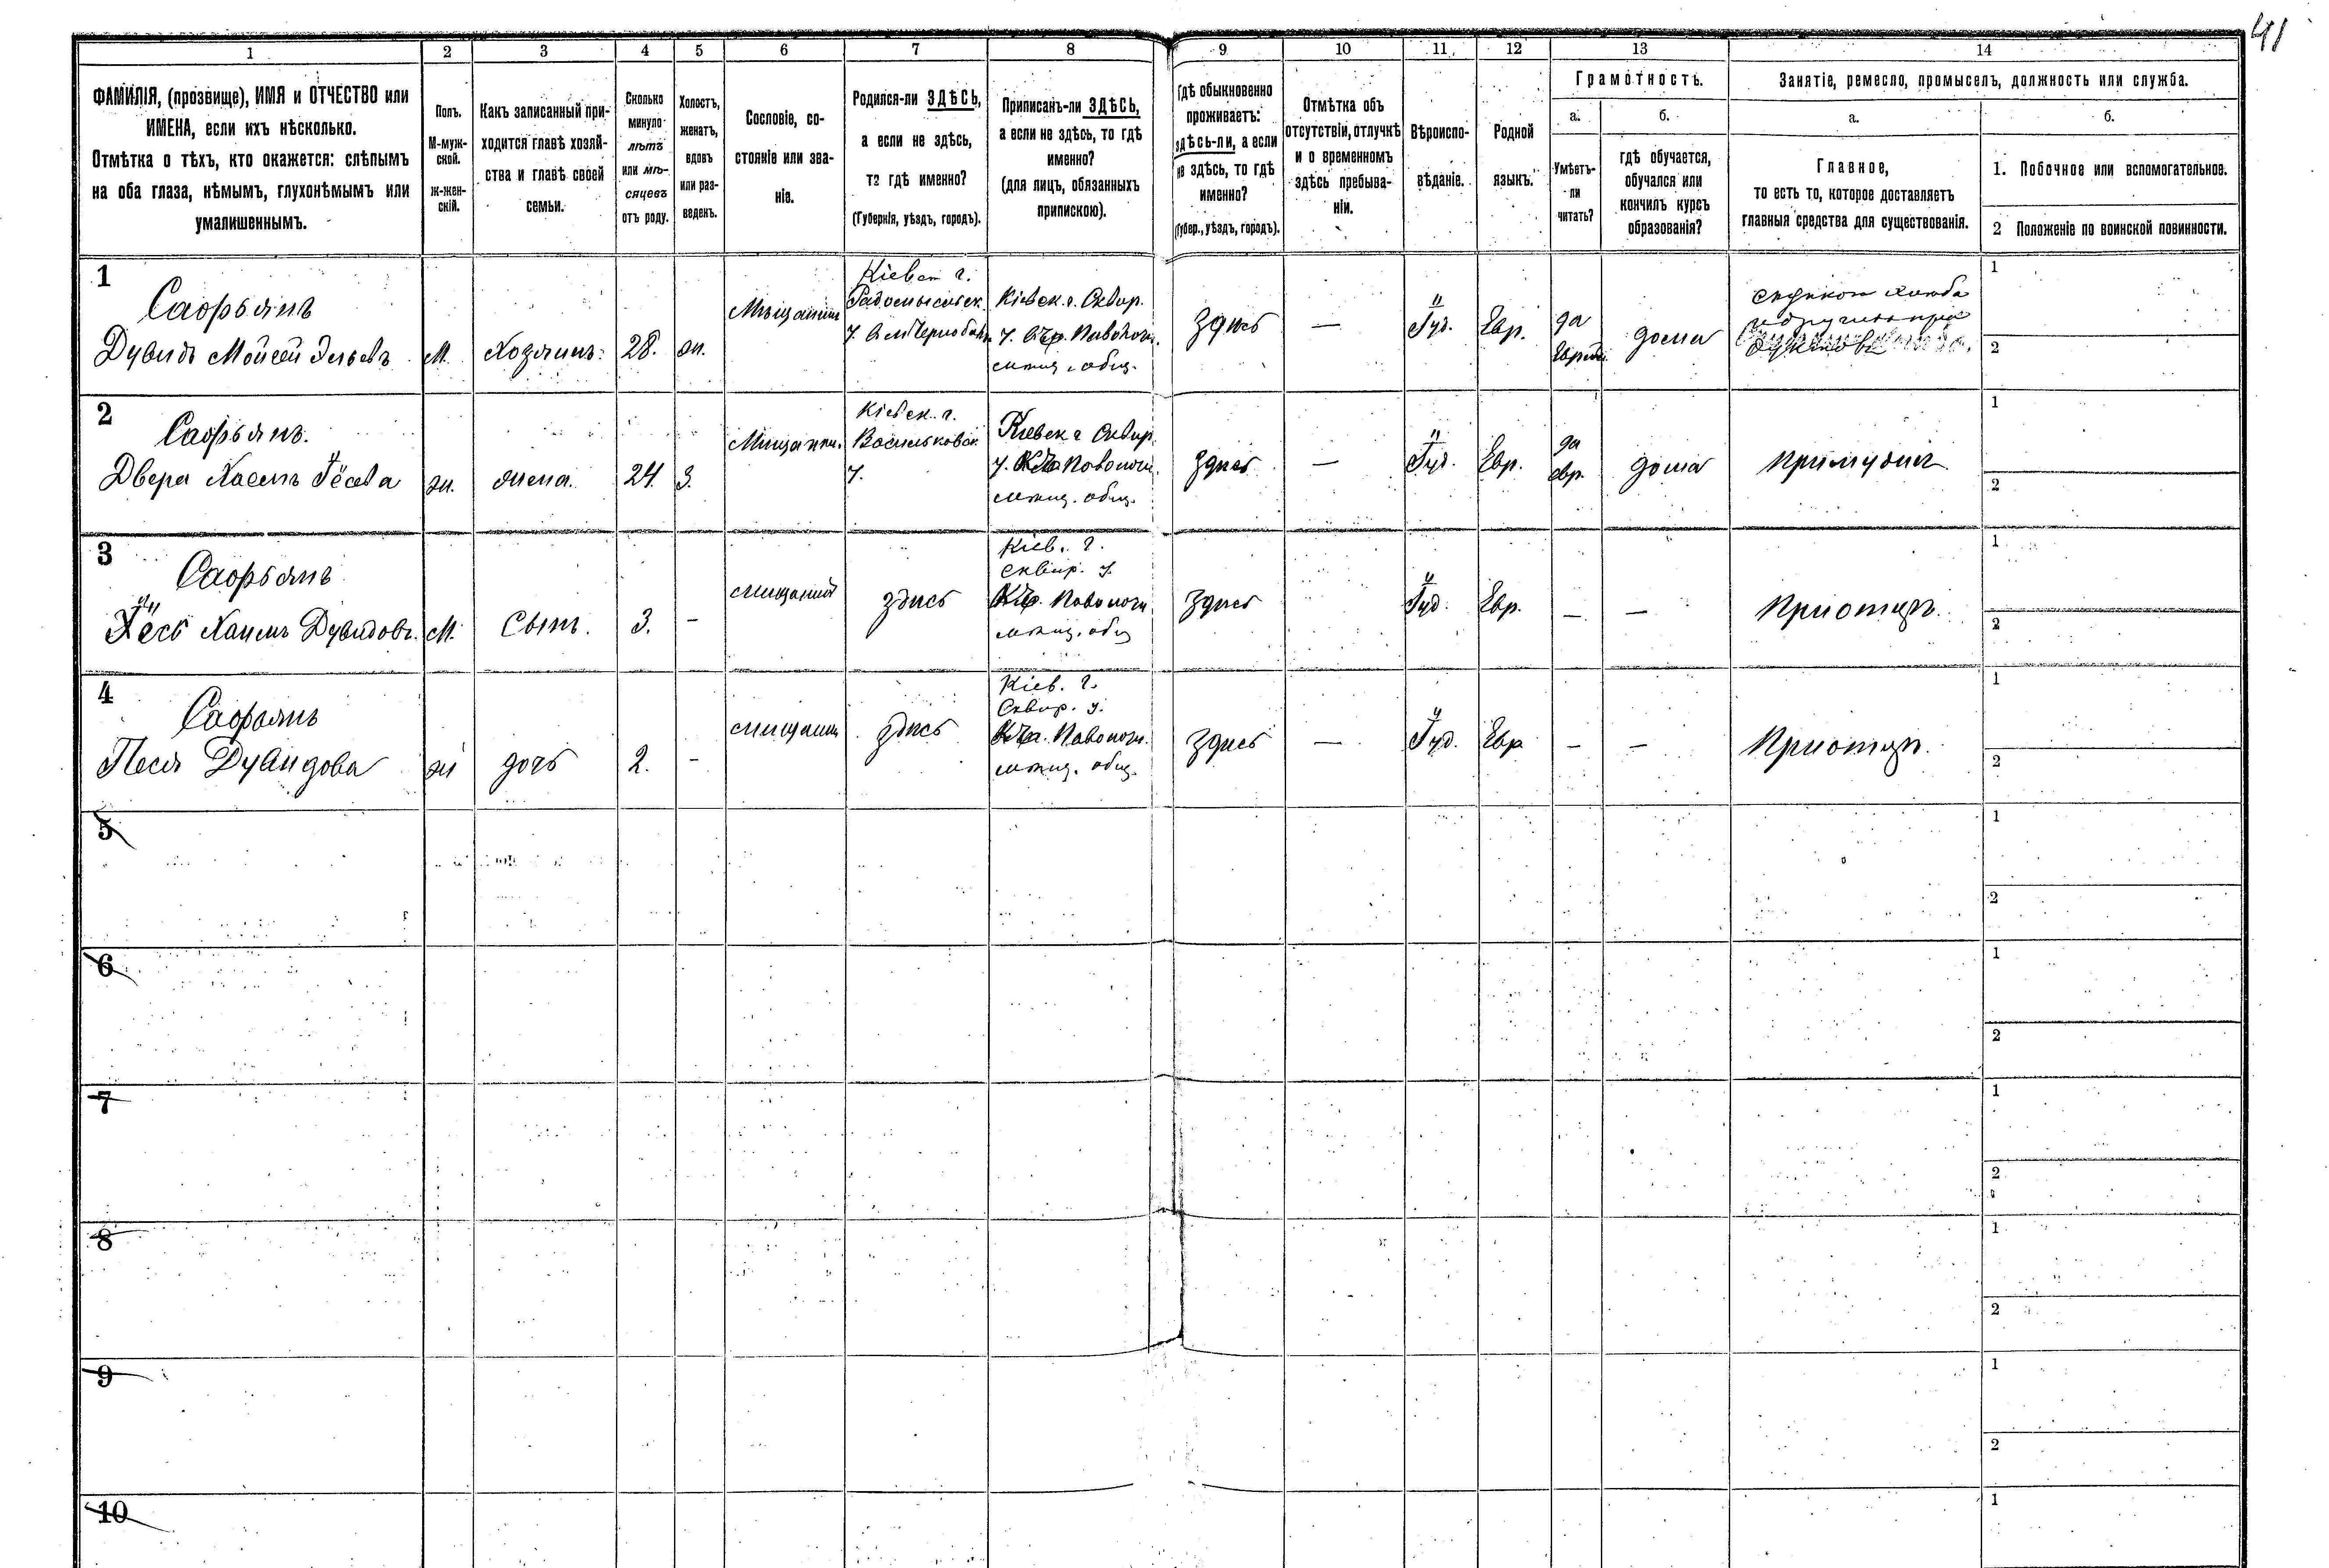 41
1 2 3 4 5 6 7 8 9 10 11 12 13 14
ФАМИЛІЯ, (прозвище), ИМЯ и ОТЧЕСТВО или
ИМЕНА, если ихъ нѣсколько.
Отмѣтка о тѣхъ, кто окажется: слѣпымъ
на оба глаза, нѣмымъ, глухонѣмымъ или
умалишеннымъ.
Полъ.
М-муж-
ской.
ж-жен-
скій.
Какъ записанный при-
ходится главѣ хозяй-
ства и главѣ своей
семьи.
Сколько
минуло
лѣтъ
или мѣ-
сяцевъ
отъ роду.
Холостъ,
женатъ,
вдовъ
или раз-
веденъ.
Сословіе, со-
стояніе или зва-
ніе.
Родился-ли ЗДѢСЬ,
а если не здѣсь,
то гдѣ именно?
(Губернія, уѣздъ, городъ).
Приписанъ-ли ЗДѢСЬ,
а если не здѣсь, то гдѣ
именно?
(для лицъ, обязанныхъ
припискою).
Гдѣ обыкновенно
проживаетъ:
здѣсь-ли, а если
не здѣсь, то гдѣ
именно?
(Губер., уѣздъ, городъ).
Отмѣтка объ
отсутствіи, отлучкѣ
и о временномъ
здѣсь пребыва-
ніи.
Вѣроиспо-
вѣданіе.
Родной
языкъ.
Грамотность.
а.
Умѣетъ-
ли
читать?
б.
гдѣ обучается,
обучался или
кончилъ курсъ
образованія?
Занятіе, ремесло, промыселъ, должность или служба.
а.
Главное,
то есть то, которое доставляетъ
главныя средства для существованія.
б.
1. Побочное или вспомогательное.
2 Положеніе по воинской повинности.
1
Сафьянъ
Дувидъ Мойсей
М.
Хозяинъ.
28.
ж.
Мѣщанинъ
г.
у.
Кіевск. г. Сквир.
у. Паволоч.
мѣщ. общ.
здѣсь
—
Іуд.
Евр.
да
дома
1
2
2
Сафьянъ.
Двера
ж.
жена.
24.
З.
Кіевск. г.
Васильковск.
у.
Кіевск г Сквир.
у. Паволоч.
мѣщ. общ.
здѣсь
—
Іуд.
Евр.
да
евр.
дома
При мужѣ
1
2
3
Сафьянъ
Хаимъ Дувидовъ.
М.
Сынъ.
3.
-
здѣсь
Кіев. г.
Сквир. у.
Паволоч.
мѣщ. общ
здѣсь
Іуд.
Евр.
—
—
При отцѣ
1
2
4
Сафьянъ
Песя Дувидова
ж
дочь
2.
-
здѣсь
Кіев. г.
Сквир. у.
Паволоч.
мѣщ. общ.
здѣсь
—
Іуд.
Евр
—
—
При отцѣ.
1
2
5
1
2
6
1
2
7
1
2
8
1
2
9
1
2
10
1